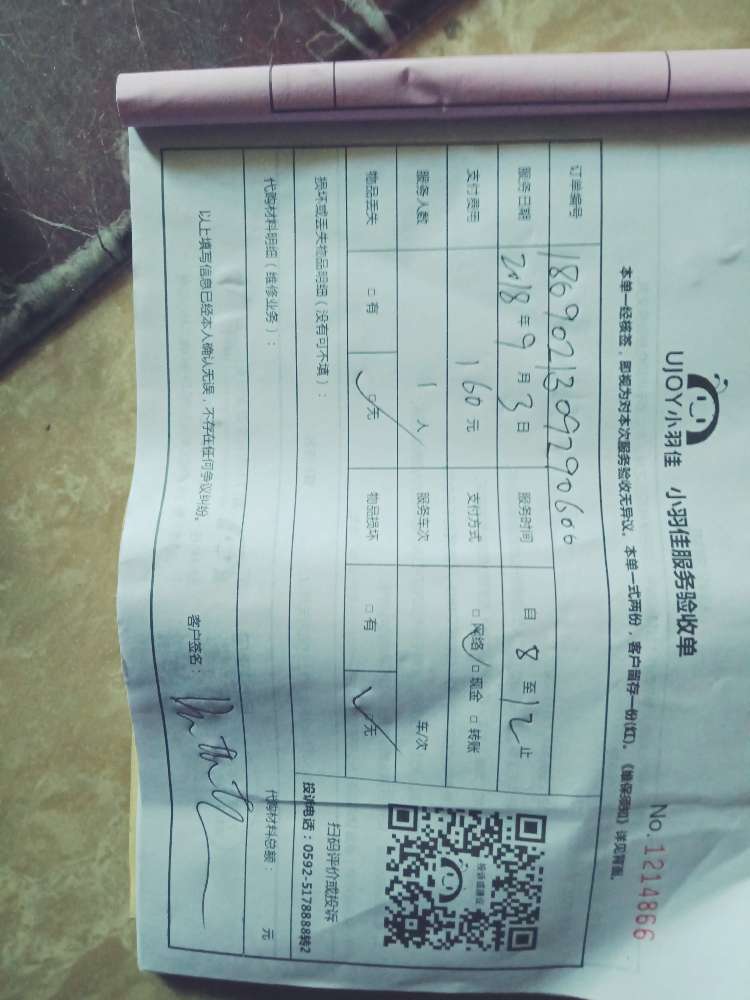 UJOY小羽佳 小羽佳服务验收单
No.1214866
本单一经核签，即视为对本次服务验收无异议。本单一式两份，客户留存一份(红)。《维保须知》详见背面。
订单编号 18690213092990606
服务日期 2018年9月3日 服务时间 自8至12止
支付费用 160元 支付方式 □网络 □现金 □转账
服务人数 1人 服务车次 车/次
物品丢失 □有 □无 物品损坏 □有 □无
损坏或丢失物品明细（没有可不填）：
代购材料明细（维修业务）：
代购材料总额： 元
以上填写信息已经本人确认无误，不存在任何争议纠纷。
客户签名：
投诉或建议
扫码评价或投诉
投诉电话：0592-5178888转2